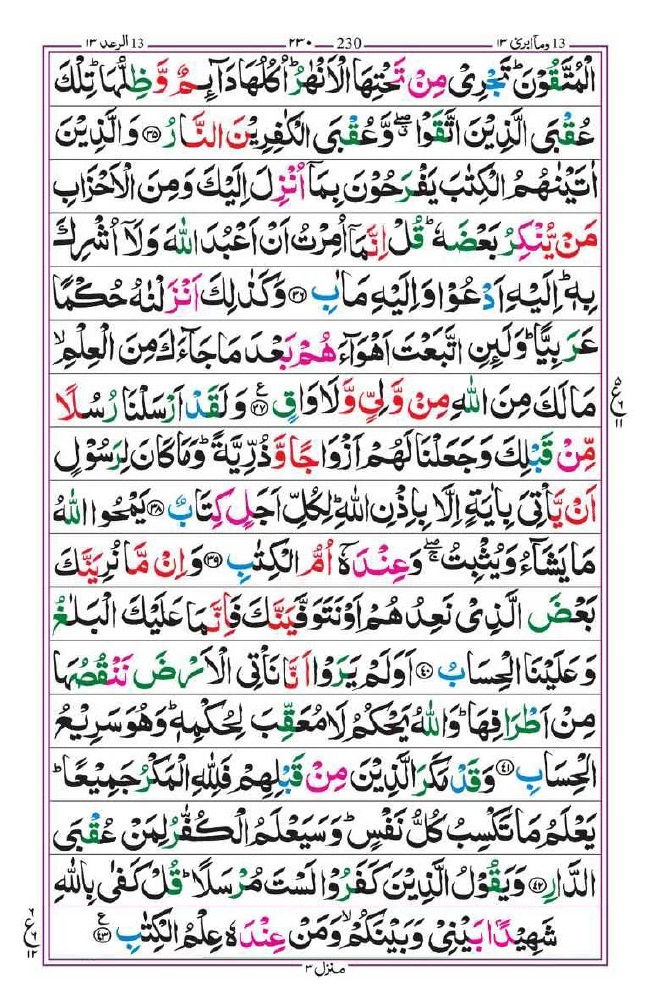 13 وماۤ ابرئ ١٣ — 230 — ٢٣٠ — 13 الرعد ١٣
الْمُتَّقُوْنَ ؕ تَجْرِیْ مِنْ تَحْتِهَا الْاَنْهٰرُ ؕ اُكُلُهَا دَآىِٕمٌ وَّ ظِلُّهَا ؕ تِلْكَ
عُقْبَی الَّذِیْنَ اتَّقَوْا ۖۗ وَّ عُقْبَی الْكٰفِرِیْنَ النَّارُ ﴿۳۵﴾ وَ الَّذِیْنَ
اٰتَیْنٰهُمُ الْكِتٰبَ یَفْرَحُوْنَ بِمَاۤ اُنْزِلَ اِلَیْكَ وَ مِنَ الْاَحْزَابِ
مَنْ یُّنْكِرُ بَعْضَهٗ ؕ قُلْ اِنَّمَاۤ اُمِرْتُ اَنْ اَعْبُدَ اللّٰهَ وَ لَاۤ اُشْرِكَ
بِهٖ ؕ اِلَیْهِ اَدْعُوْا وَ اِلَیْهِ مَاٰبِ ﴿۳۶﴾ وَ كَذٰلِكَ اَنْزَلْنٰهُ حُكْمًا
عَرَبِیًّا ؕ وَ لَىِٕنِ اتَّبَعْتَ اَهْوَآءَهُمْ بَعْدَ مَا جَآءَكَ مِنَ الْعِلْمِ ۙ
مَا لَكَ مِنَ اللّٰهِ مِنْ وَّلِیٍّ وَّ لَا وَاقٍ ﴿۳۷﴾ ع وَ لَقَدْ اَرْسَلْنَا رُسُلًا
ع ١١
مِّنْ قَبْلِكَ وَ جَعَلْنَا لَهُمْ اَزْوَاجًا وَّ ذُرِّیَّةً ؕ وَ مَا كَانَ لِرَسُوْلٍ
اَنْ یَّاْتِیَ بِاٰیَةٍ اِلَّا بِاِذْنِ اللّٰهِ ؕ لِكُلِّ اَجَلٍ كِتَابٌ ﴿۳۸﴾ یَمْحُوا اللّٰهُ
مَا یَشَآءُ وَ یُثْبِتُ ۖۚ وَ عِنْدَهٗۤ اُمُّ الْكِتٰبِ ﴿۳۹﴾ وَ اِنْ مَّا نُرِیَنَّكَ
بَعْضَ الَّذِیْ نَعِدُهُمْ اَوْ نَتَوَفَّیَنَّكَ فَاِنَّمَا عَلَیْكَ الْبَلٰغُ
وَ عَلَیْنَا الْحِسَابُ ﴿۴۰﴾ اَوَ لَمْ یَرَوْا اَنَّا نَاْتِی الْاَرْضَ نَنْقُصُهَا
مِنْ اَطْرَافِهَا ؕ وَ اللّٰهُ یَحْكُمُ لَا مُعَقِّبَ لِحُكْمِهٖ ؕ وَ هُوَ سَرِیْعُ
الْحِسَابِ ﴿۴۱﴾ وَ قَدْ مَكَرَ الَّذِیْنَ مِنْ قَبْلِهِمْ فَلِلّٰهِ الْمَكْرُ جَمِیْعًا ؕ
یَعْلَمُ مَا تَكْسِبُ كُلُّ نَفْسٍ ؕ وَ سَیَعْلَمُ الْكُفّٰرُ لِمَنْ عُقْبَی
الدَّارِ ﴿۴۲﴾ وَ یَقُوْلُ الَّذِیْنَ كَفَرُوْا لَسْتَ مُرْسَلًا ؕ قُلْ كَفٰی بِاللّٰهِ
شَهِیْدًۢا بَیْنِیْ وَ بَیْنَكُمْ ۙ وَ مَنْ عِنْدَهٗ عِلْمُ الْكِتٰبِ ﴿۴۳﴾ ع
٦ ع ٦ ١٢
منزل ٣